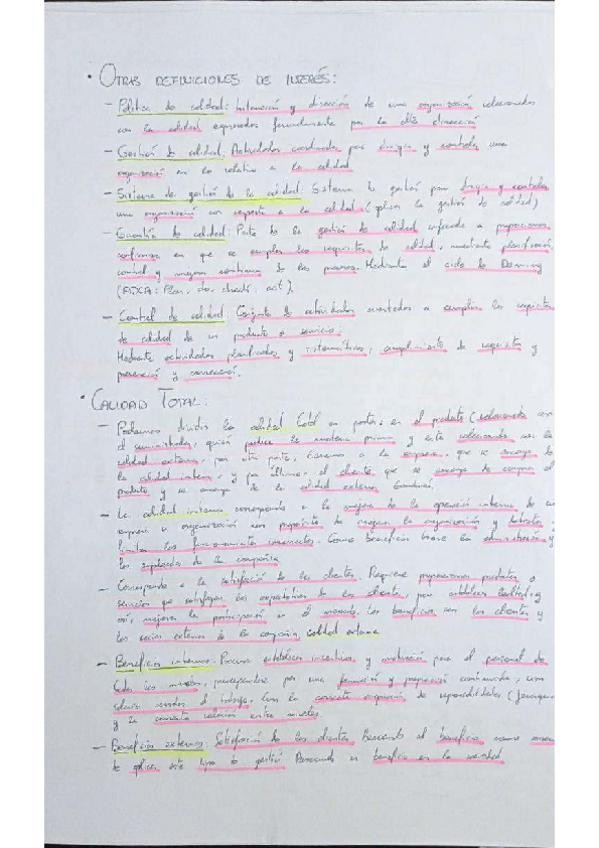 • OTRAS DEFINICIONES DE INTERÉS:
– Política de calidad: Intención y dirección de una organización relacionados
con la calidad expresados formalmente por la alta dirección
– Gestión de calidad: Actividades coordinadas para dirigir y controlar una
organización en lo relativo a la calidad
– Sistema de gestión de la calidad: Sistema de gestión para dirigir y controlar
una organización con respecto a la calidad (aplican la gestión de calidad)
– Garantía de calidad: Parte de la gestión de calidad enfocada a proporcionar
confianza en que se cumplen los requisitos de calidad, mediante planificación
control y mejora continua de los procesos. Mediante el ciclo de Deming
Plan, do, check, act).
– Control de calidad: Conjunto de actividades orientadas a cumplir los requisitos
de calidad de un producto o servicio.
Mediante actividades planificadas y sistemáticas, cumplimiento de requisitos y
prevención y corrección.
• CALIDAD TOTAL:
– Podemos dividir la calidad total en partes: en el producto (relacionado con
el suministrador, quien produce la materia prima y está relacionado con la
calidad externa, por otra parte, tenemos a la empresa, que se encarga de
la calidad interna, y por último, el cliente, que se encarga de comprar el
producto y se encarga de la calidad externa también.
– La calidad interna corresponde a la mejora de la operación interna de una
empresa u organización con propósito de mejorar la organización y
limitar los funcionamientos incorrectos. Como beneficio tiene la administración y
los empleados de la compañía
– Corresponde a la satisfacción de los clientes. Requiere proporcionar productos o
servicios que satisfagan las expectativas de los clientes, para establecer lealtad y
así, mejorar la participación en el mercado. Los beneficios son los clientes y
los socios externos de la compañía calidad externa
– Beneficios internos: Procura establecer incentivos y motivación para el personal de
todos los niveles, por una formación y preparación continuada, con
el trabajo. Con la correcta asignación de responsabilidades
y la correcta relación entre niveles.
– Beneficios externos: Satisfacción de los clientes Buscando el beneficio como
de aplicar este tipo de gestión Buscando un beneficio en la sociedad